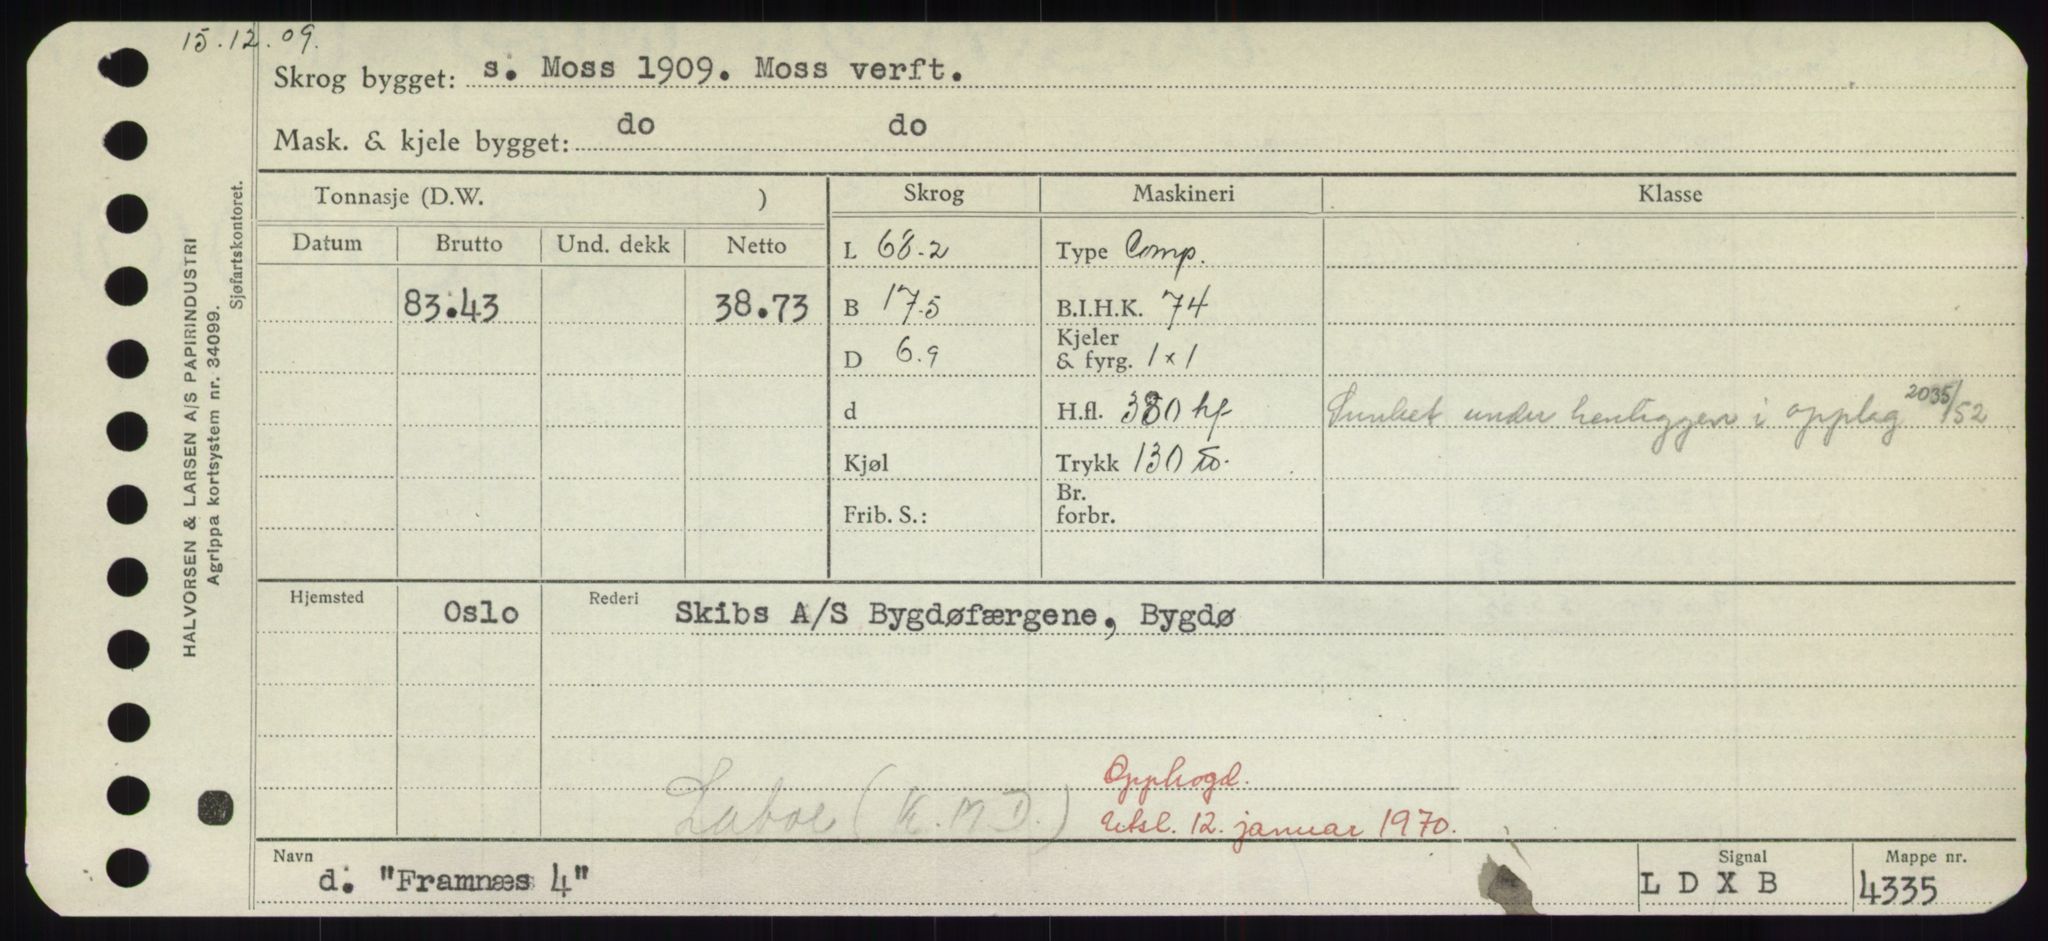 15.12.09.
Skrog bygget: s. Moss 1909. Moss verft.
Mask. & kjele bygget: do do
HALVORSEN & LARSEN A/S PAPIRINDUSTRI
Agrippa kortsystem nr. 34099.
Sjøfartskontoret.
Tonnasje (D.W. ) Skrog Maskineri Klasse
Datum Brutto Und. dekk Netto
L 68.2 Type Comp.
83.43 38.73 B 17.5 B.I.H.K. 74
D 6.9 Kjeler & fyrg. 1 x 1
d H.fl. 380 hf Sunket under henliggen i opplag 2035/52
Kjøl Trykk 130 lb.
Frib. S.: Br. forbr.
Hjemsted Oslo Rederi Skibs A/S Bygdøfærgene, Bygdø
Laboe (K.M.D.) Opphogd.
Utsl. 12. januar 1970.
Navn d. "Framnæs 4" Signal LDXB Mappe nr. 4335